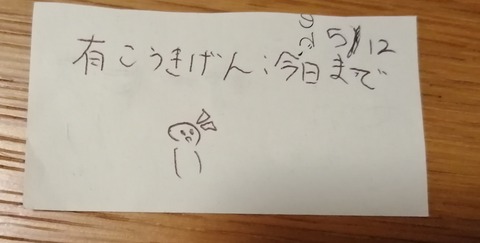 5/12
有こうきげん:今日まで